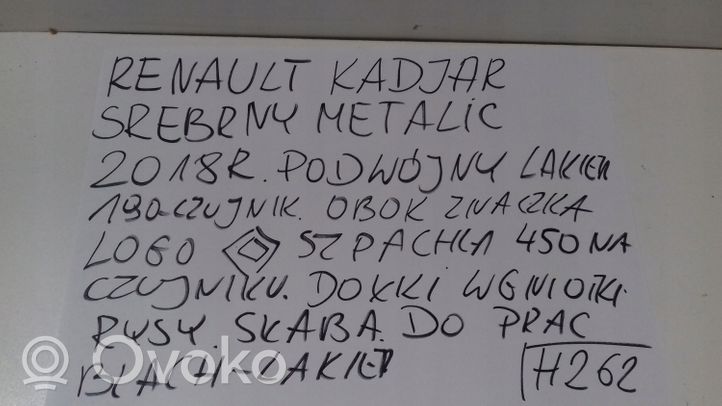 RENAULT KADJAR
SREBRNY METALIC
2018R. PODWÓJNY LAKIER
190-CZUJNIK. OBOK ZNACZKA
LOGO SZPACHLA 450 NA
CZUJNIKU. DOŁKI WGNIOTKI.
RYSY. SKABA. DO PRAC
BLACH-LAKIER H262
Ovoko